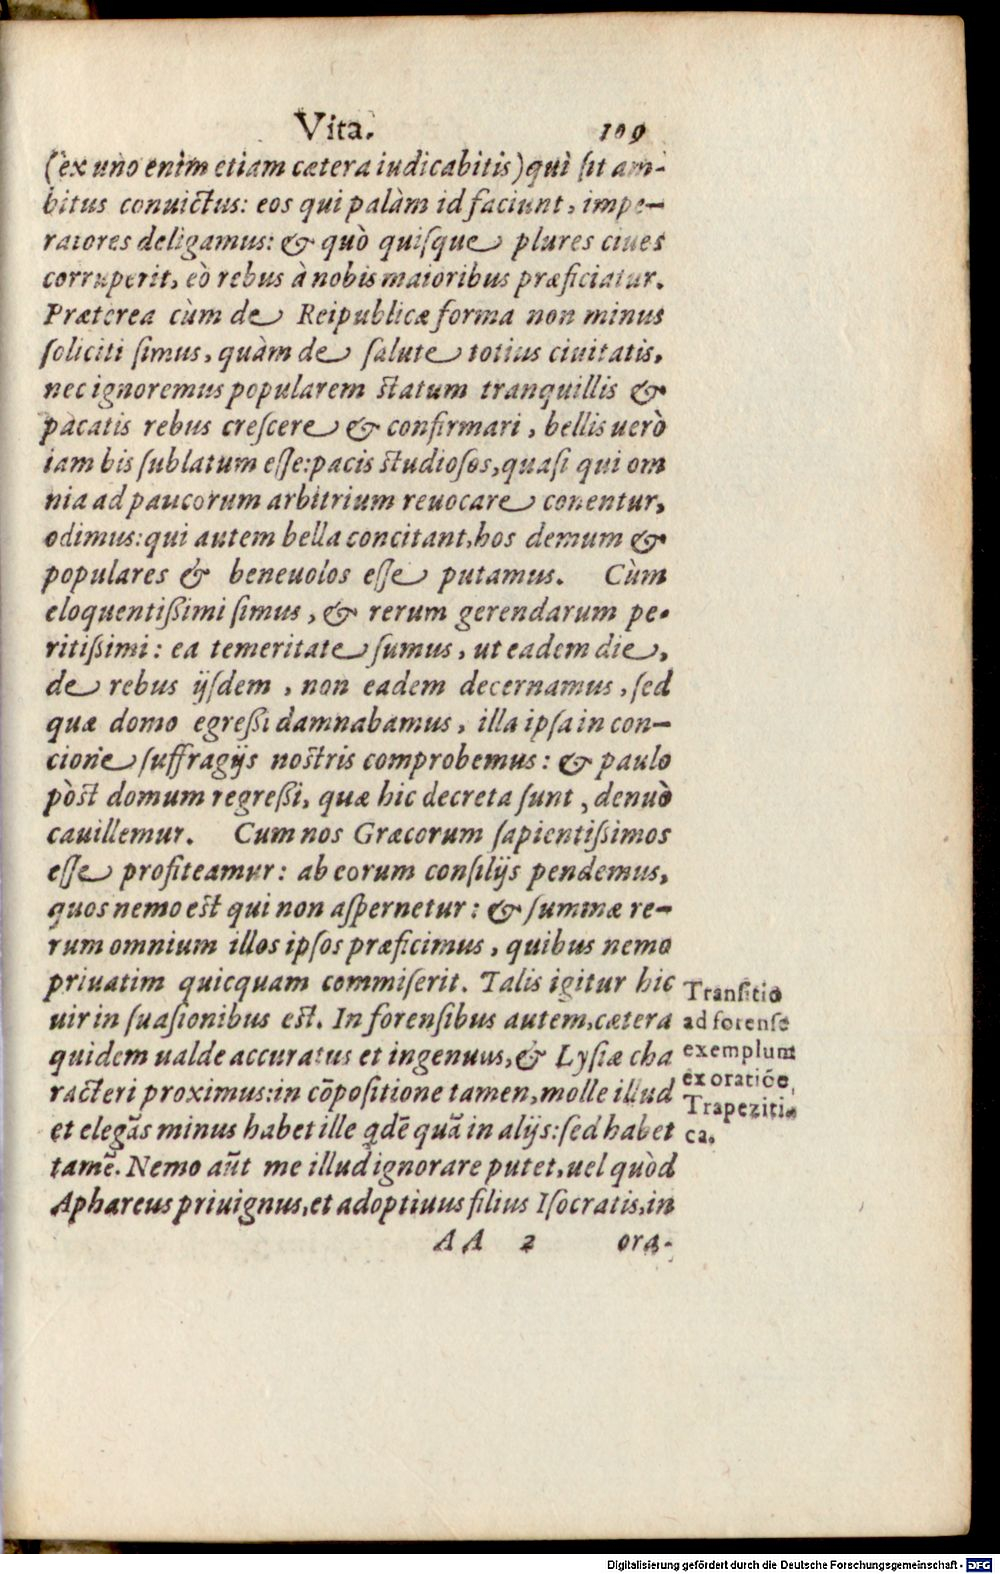 Vita. 109
(ex uno enim etiam cætera iudicabitis) qui sit am-
bitus conuictus: eos qui palàm id faciunt, impe-
ratores deligamus: & quò quisque plures ciues
corruperit, eò rebus à nobis maioribus præficiatur.
Præterea cùm de Reipublicæ forma non minus
soliciti simus, quàm de salute totius ciuitatis,
nec ignoremus popularem statum tranquillis &
pacatis rebus crescere & confirmari, bellis uerò
iam bis sublatum esse: pacis studiosos, quasi qui om
nia ad paucorum arbitrium reuocare conentur,
odimus: qui autem bella concitant, hos demum &
populares & beneuolos esse putamus. Cùm
eloquentißimi simus, & rerum gerendarum pe-
ritißimi: ea temeritate sumus, ut eadem die,
de rebus ijsdem, non eadem decernamus, sed
quæ domo egreßi damnabamus, illa ipsa in con-
cione suffragijs nostris comprobemus: & paulo
pòst domum regreßi, quæ hic decreta sunt, denuò
cauillemur. Cum nos Græcorum sapientißimos
esse profiteamur: ab eorum consilijs pendemus,
quos nemo est qui non aspernetur: & summæ re-
rum omnium illos ipsos præficimus, quibus nemo
priuatim quicquam commiserit. Talis igitur hic
uir in suasionibus est. In forensibus autem, cætera
quidem ualde accuratus et ingenuus, & Lysiæ cha
racteri proximus: in cõpositione tamen, molle illud
et elegãs minus habet ille qdẽ quã in alijs: sed habet
tamẽ. Nemo aũt me illud ignorare putet, uel quòd
Aphareus priuignus, et adoptiuus filius Isocratis, in
AA 2 ora-
Transitio
ad forense
exemplum
ex oratiõe
Trapeziti-
ca.
Digitalisierung gefördert durch die Deutsche Forschungsgemeinschaft - DFG